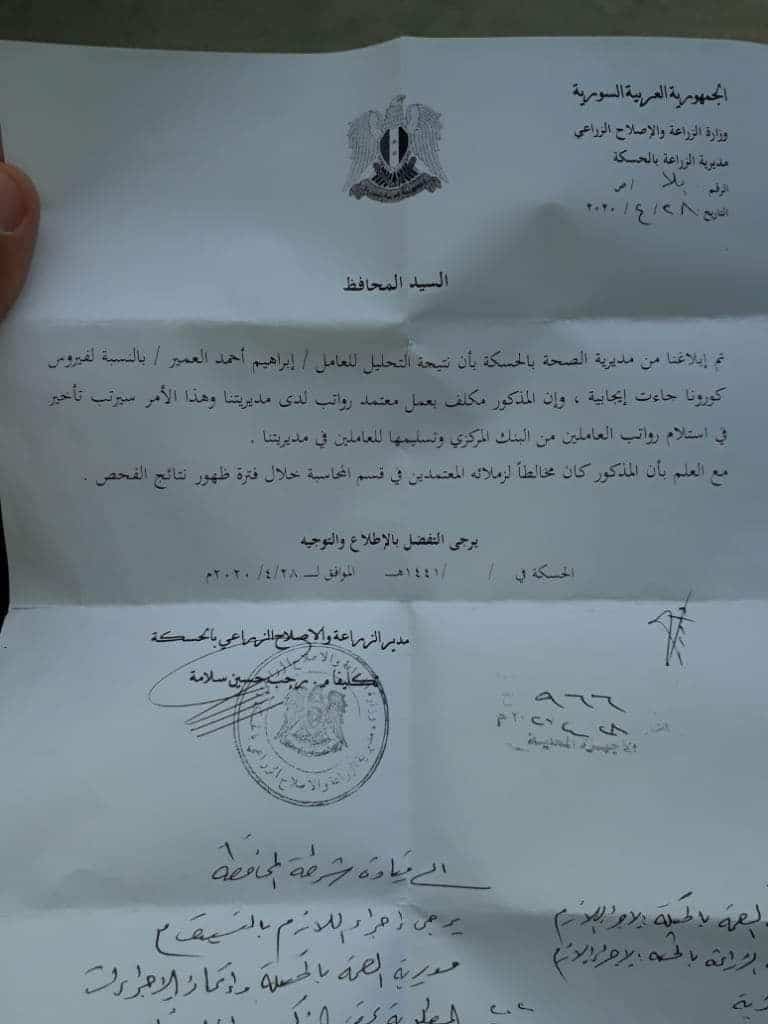 الجمهورية العربية السورية
وزارة الزراعة والإصلاح الزراعي
مديرية الزراعة بالحسكة
الرقم بلا / ص
التاريخ ٢٨ / ٤ / ٢٠٢٠
السيد المحافظ
تم إبلاغنا من مديرية الصحة بالحسكة بأن نتيجة التحليل للعامل / إبراهيم أحمد العمير / بالنسبة لفيروس
كورونا جاءت إيجابية ، وإن المذكور مكلف بعمل معتمد رواتب لدى مديريتنا وهذا الأمر سيرتب تأخير
في استلام رواتب العاملين من البنك المركزي وتسليمها للعاملين في مديريتنا .
مع العلم بأن المذكور كان مخالطاً لزملائه المعتمدين في قسم المحاسبة خلال فترة ظهور نتائج الفحص .
يرجى التفضل بالإطلاع والتوجيه
الحسكة في / /١٤٤١هـ الموافق لـ ٢٠٢٠/٤/٢٨م
مدير الزراعة والإصلاح الزراعي بالحسكة
تكليفاً م. رجب حسين سلامة
٩٦٦
الى قيادة شرطة المحافظة
يرجى إجراء اللازم بالتنسيق مع
مديرية الصحة بالحسكة واتخاذ الاجراءات
الصحة بالحسكة: لإجراء اللازم
الزراعة بالحسكة: لإجراء اللازم